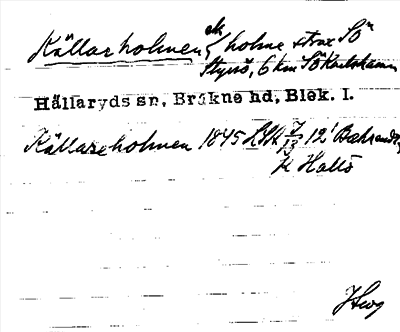 Källarholmen sk holme strax SO
Styrsö, 6 km SO Karlshamn
Hällaryds sn, Bräkne hd, Blek. l.
Källareholmen 1845 LSA 7/13 12' Backanäs
H Hallö